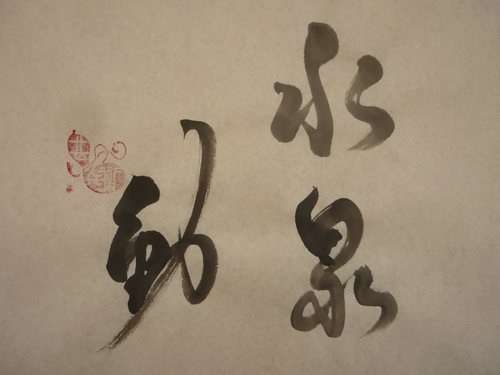 水泉
動